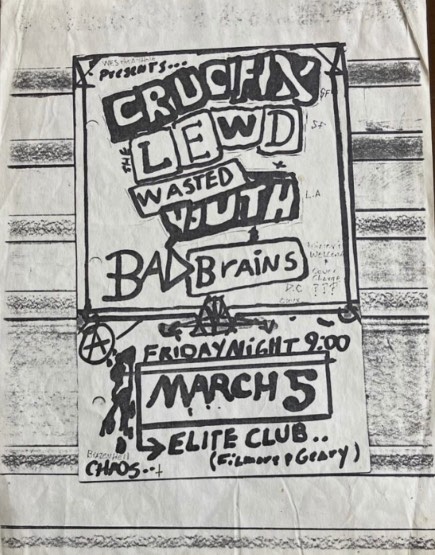 Presents...
CRUCIFIX
SF
THE LEWD
S.F.
WASTED
YOUTH
L.A
BAD BRAINS
D.C
A
FRIDAY NIGHT 9:00
MARCH 5
ELITE CLUB..
(Filmore & Geary)
CHAOS..